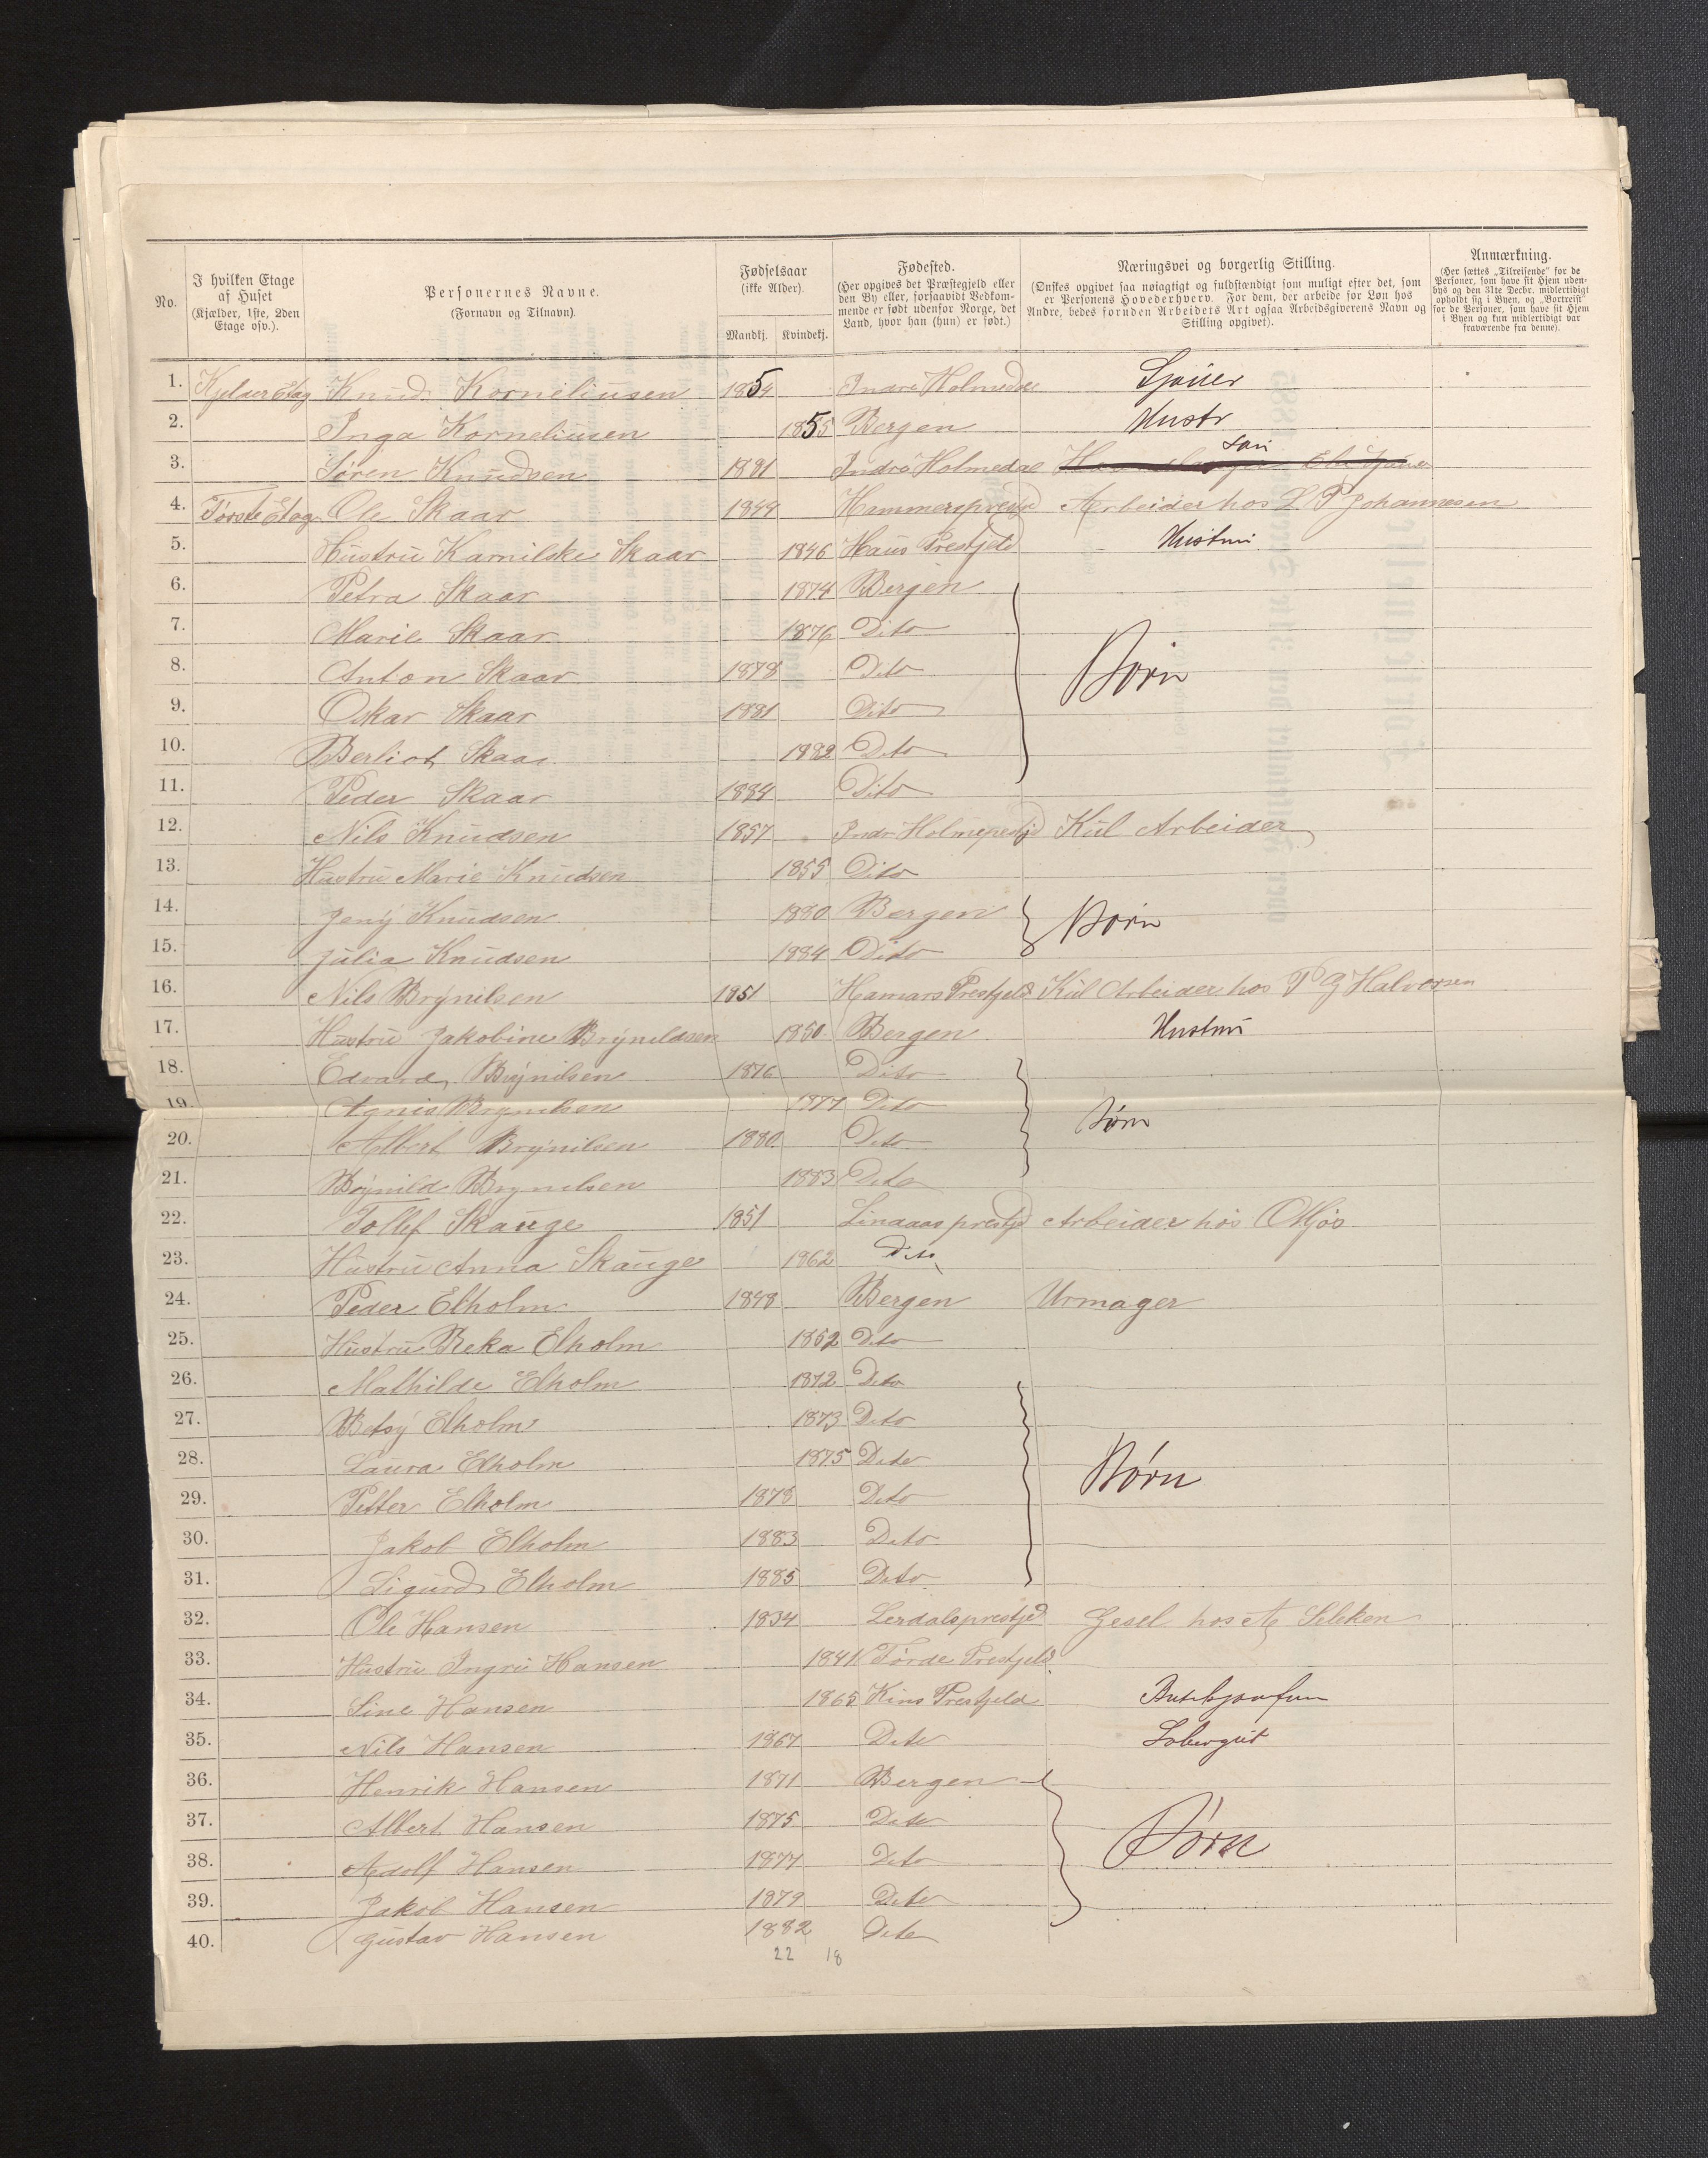 No.
I hvilken Etage
af Huset
(Kjælder, 1ste, 2den
Etage osv.).
Personernes Navne.
(Fornavn og Tilnavn).
Fødselsaar
(ikke Alder).
Mandkj. Kvindekj.
Fødested.
(Her opgives det Præstegjeld eller
den By eller, forsaavidt Vedkom-
mende er født udenfor Norge, det
Land, hvor han (hun) er født.)
Næringsvei og borgerlig Stilling.
(Ønskes opgivet saa nøiagtigt og fuldstændigt som muligt efter det, som
er Personens Hovederhverv. For dem, der arbeide for Løn hos
Andre, bedes foruden Arbeidets Art ogsaa Arbeidsgiverens Navn og
Stilling opgivet).
Anmærkning.
(Her sættes „Tilreisende“ for de
Personer, som have sit Hjem uden-
bys og den 31te Decbr. midlertidigt
opholdt sig i Byen, og „Bortreist“
for de Personer, som have sit Hjem
i Byen og kun midlertidigt var
fraværende fra denne).
1. Kjelder Etag Knud Korneliusen 1854 Indre Holmedal Sjauer
2. Inga Korneliusen 1855 Bergen Hustr
3. Søren Knudsen 1881 Indre Holmedal Søn
4. Første Etag Ole Skaar 1849 Hammersprestgjd Arbeider hos L P Johannesen
5. Hustru Karnilske Skaar 1846 Haus Prestjeld Hustru
6. Petra Skaar 1874 Bergen
7. Marie Skaar 1876 Dito
8. Anton Skaar 1878 Dito Børn
9. Oskar Skaar 1881 Dito
10. Berliot Skaar 1882 Dito
11. Peder Skaar 1884 Dito
12. Nils Knudsen 1857 Indr Holmeprestjd Kul Arbeider
13. Hustru Marie Knudsen 1855 Dito
14. Jeny Knudsen 1880 Bergen Børn
15. Julia Knudsen 1884 Dito
16. Nils Brynilsen 1851 Hamars Prestgeld Kul Arbeider hos P G Halvorsen
17. Hustru Jakobine Bryneldsen 1850 Bergen Hustru
18. Edvard Brynilsen 1876 Dito
19. Agnis Brynilsen 1877 Dito Børn
20. Albert Brynilsen 1880 Dito
21. Brynild Brynelsen 1883 Dito
22. Tollef Skauge 1851 Lindaas prestjd Arbeider hos
23. Hustru Anna Skauge 1862 Dito
24. Peder Elholm 1848 Bergen Urmager
25. Hustru Reka Elholm 1852 Dito
26. Mathilde Elholm 1872 Dito
27. Betsy Elholm 1873 Dito
28. Laura Elholm 1875 Dito Børn
29. Petter Elholm 1878 Dito
30. Jakob Elholm 1883 Dito
31. Sigurd Elholm 1885 Dito
32. Ole Hansen 1834 Lerdalsprestjd Gesel hos A Selken
33. Hustru Ingri Hansen 1841 Førde Prestjeld
34. Sine Hansen 1865 Kins Prestjeld
35. Nils Hansen 1867 Dito Løbergut
36. Henrik Hansen 1871 Bergen
37. Albert Hansen 1875 Dito Børn
38. Adolf Hansen 1877 Dito
39. Jakob Hansen 1879 Dito
40. Gustav Hansen 1882 Dito
22 18